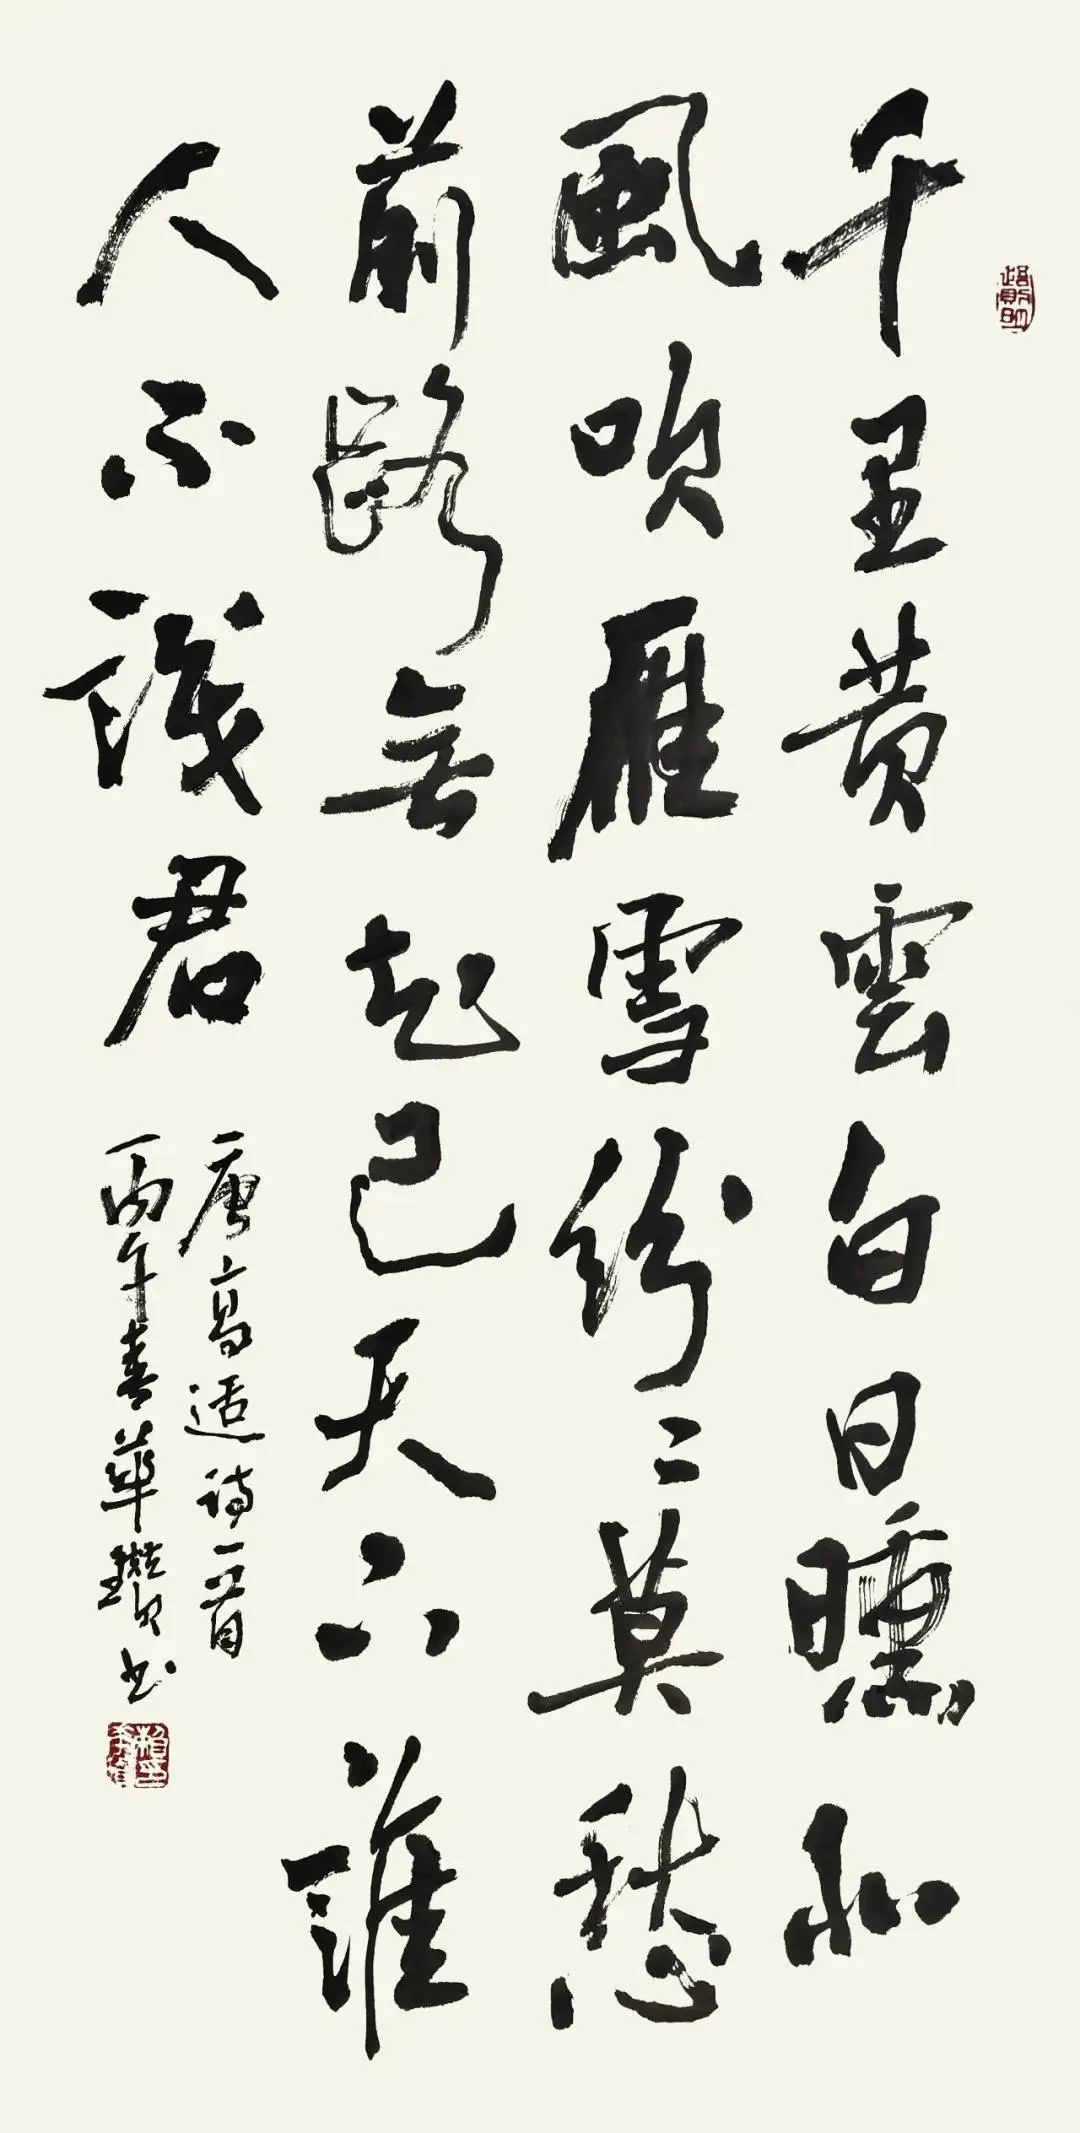 千里黄雲白日曛北
風吹雁雪紛〻莫愁
前路無知己天下誰
人不識君
唐高适诗一首
丙午春華瓚书